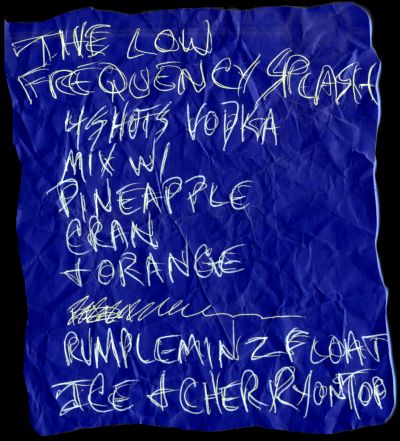 THE LOW
FREQUENCY SPLASH
4 SHOTS VODKA
MIX W/
PINEAPPLE
CRAN
& ORANGE
RUMPLEMINZ FLOAT
ICE & CHERRY ON TOP